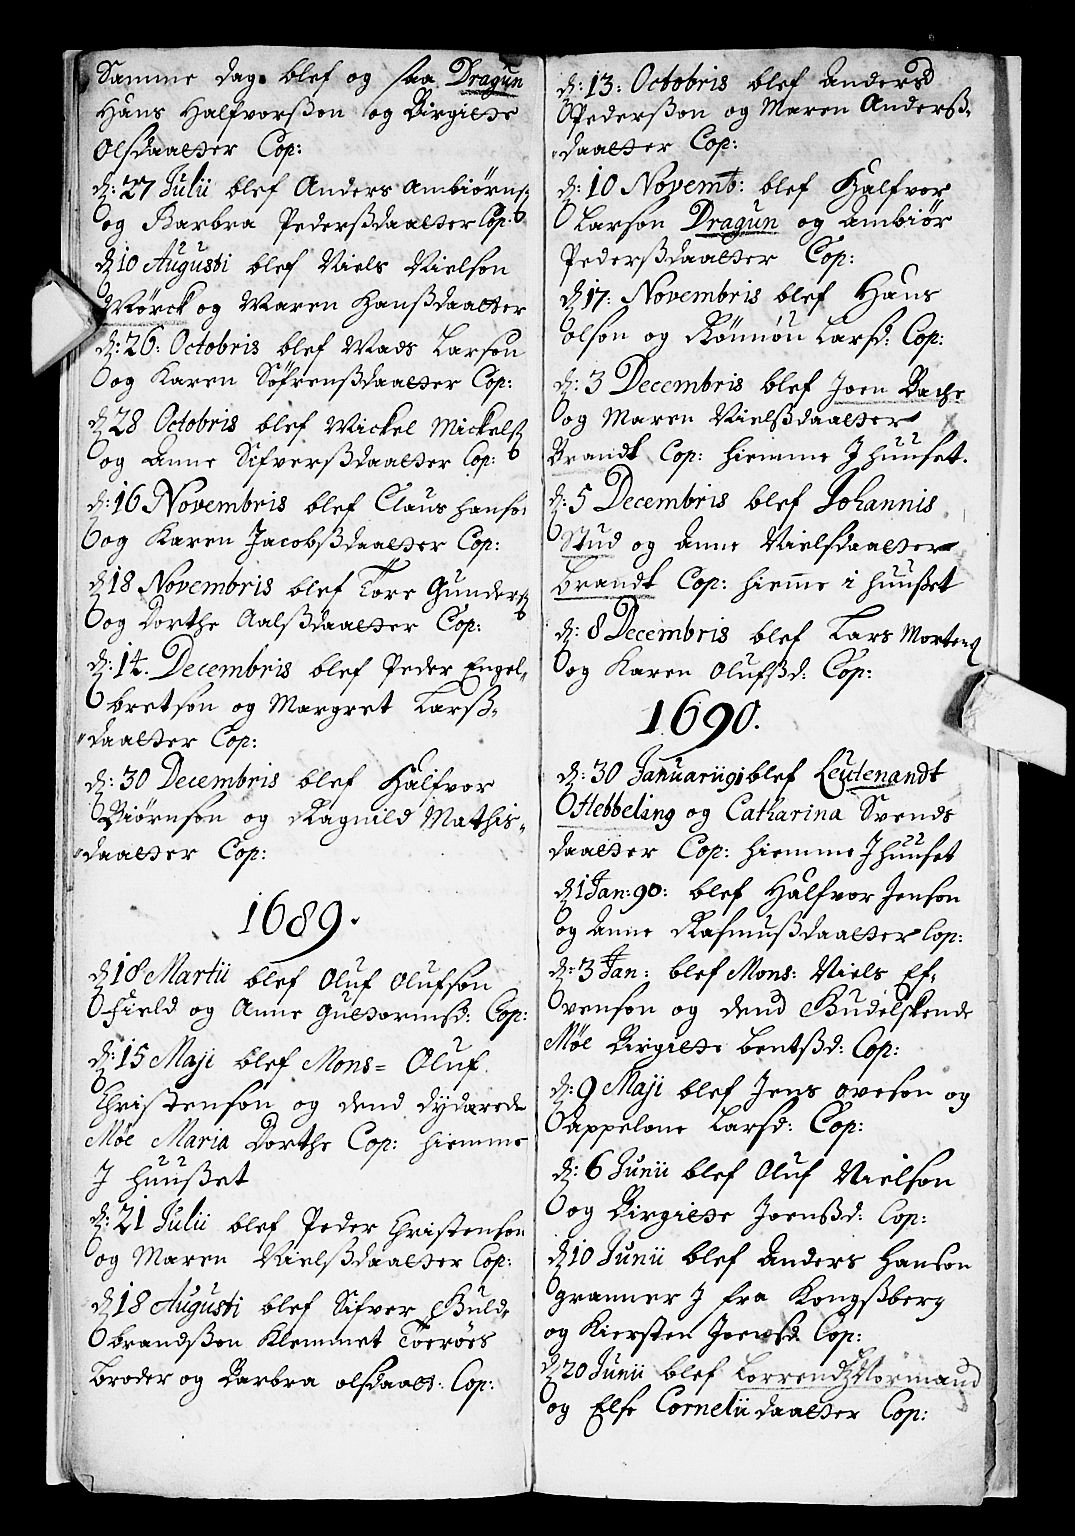 Samme dag blef og saa Dragun
Hans Halfvorßon og Birgitte
Olsdaatter Cop:
d: 27 Julii blef Anders Ambiørns:
og Barbra Pederßdaatter Cop:
d 10 Augusti blef Niels Nielson
Mörck og Maren Hanßdaatter
d: 26: Octobris blef Mads Larson
og Karen Söfrenßdaatter Cop:
d 28 Octobris blef Mickel Mickelß
og Anne Sifverßdaatter Cop:
d: 16 Novembris blef Claus Hanso:
og Karen Jacobßdaatter Cop:
d 18 Novembris blef Tore Gunderß
og Dorthe Aalßdaatter Cop:
d: 14. Decembris blef Peder Engel„
bretson og Margret Larß„
„daatter Cop:
d: 30 Decembris blef Halfvor
Biörnson og Ragnild Mathis„
„daatter Cop:
1689.
d 18 Martii blef Oluf Olufson
Field og Anne Guttormsd: Cop:
d: 15 Maji blef Mons= Oluf
Christenson og dend dydærede
Møe Maria Dorthe Cop: hiemme
J huußet
d: 21 Julii blef Peder Christenson
og Maren Nielßdaatter Cop:
d 18 Augusti blef Sifver Guld„
brandßon Klemmet
Broder og Barbra olsdaatt: Cop:
d: 13: Octobris blef Anders
Pederßon og Maren Anderß„
„daatter Cop:
d: 10 Novemb: blef Halfvor
Larson Dragun og Ambiør
Pederßdaatter Cop:
d 17: Novembris blef Hans
olson og Rönnöu Larsd: Cop:
d: 3 Decembris blef Joen Bache
og Maren Nielßdaatter
Brandt Cop: hiemme J huuset.
d: 5 Decembris blef Johannis
Stud og Anne Nielsdaatter
Brandt Cop: hieme i huußet
d: 8 Decembris blef Lars Mortenß
og Karen Olufsd: Cop:
1690.
d: 30 Januarii 91 blef Leutenandt
Hebbeling og Catharina Svends
daatter Cop: hiemme J huuset
d 1 Jan: 90: blef Halfvor Jenson
og Anne Rasmußdaatter Cop:
d: 3 Jan: blef Mons: Niels Ef„
venson og dend Gudelskende
Møe Birgitte Bentsd: Cop:
d: 9 Maji blef Jens oveson og
appelone Larsd: Cop:
d: 6 Junii blef Oluf Nielson
og Birgitte Joenßd: Cop:
d 10 Junii blef Anders Hanson
granner J fra Kongßberg
og Kiersten Joensd Cop:
d 20 Junii blef Lorrendz Normand
og Else Cornelii daatter Cop: